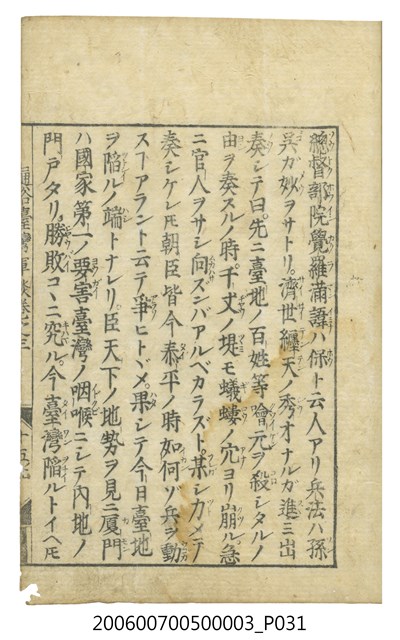 總督部院覺羅滿諱ハ保ト云人アリ兵法ハ孫
呉ガ妙ヲサトリ。濟世纒天ノ秀才ナルガ進ミ出
奏シテ曰。先ニ臺地ノ百姓等噲元ヲ殺シタルノ
由ヲ奏スルノ時。千丈ノ堤モ蟻螻ノ穴ヨリ崩ル急
ニ官人ヲサシ向ズンバアルベカラズト。某シカメテ
奏シケレ𪜈朝臣皆今泰平ノ時如何ソ兵ヲ動
スヿアラント云テ爭ヒトドメ。果シテ今日臺地
ヲ陷ルノ端トナレリ。臣天下ノ地勢ヲ見ニ厦門
ハ國家第一ノ要害臺灣ノ咽喉ニシテ内地ノ
門戸タリ。勝敗コヽニ究ル。今臺灣陷ルトイヘ𪜈
臺灣軍談卷之三
十五
200600700500003_P031